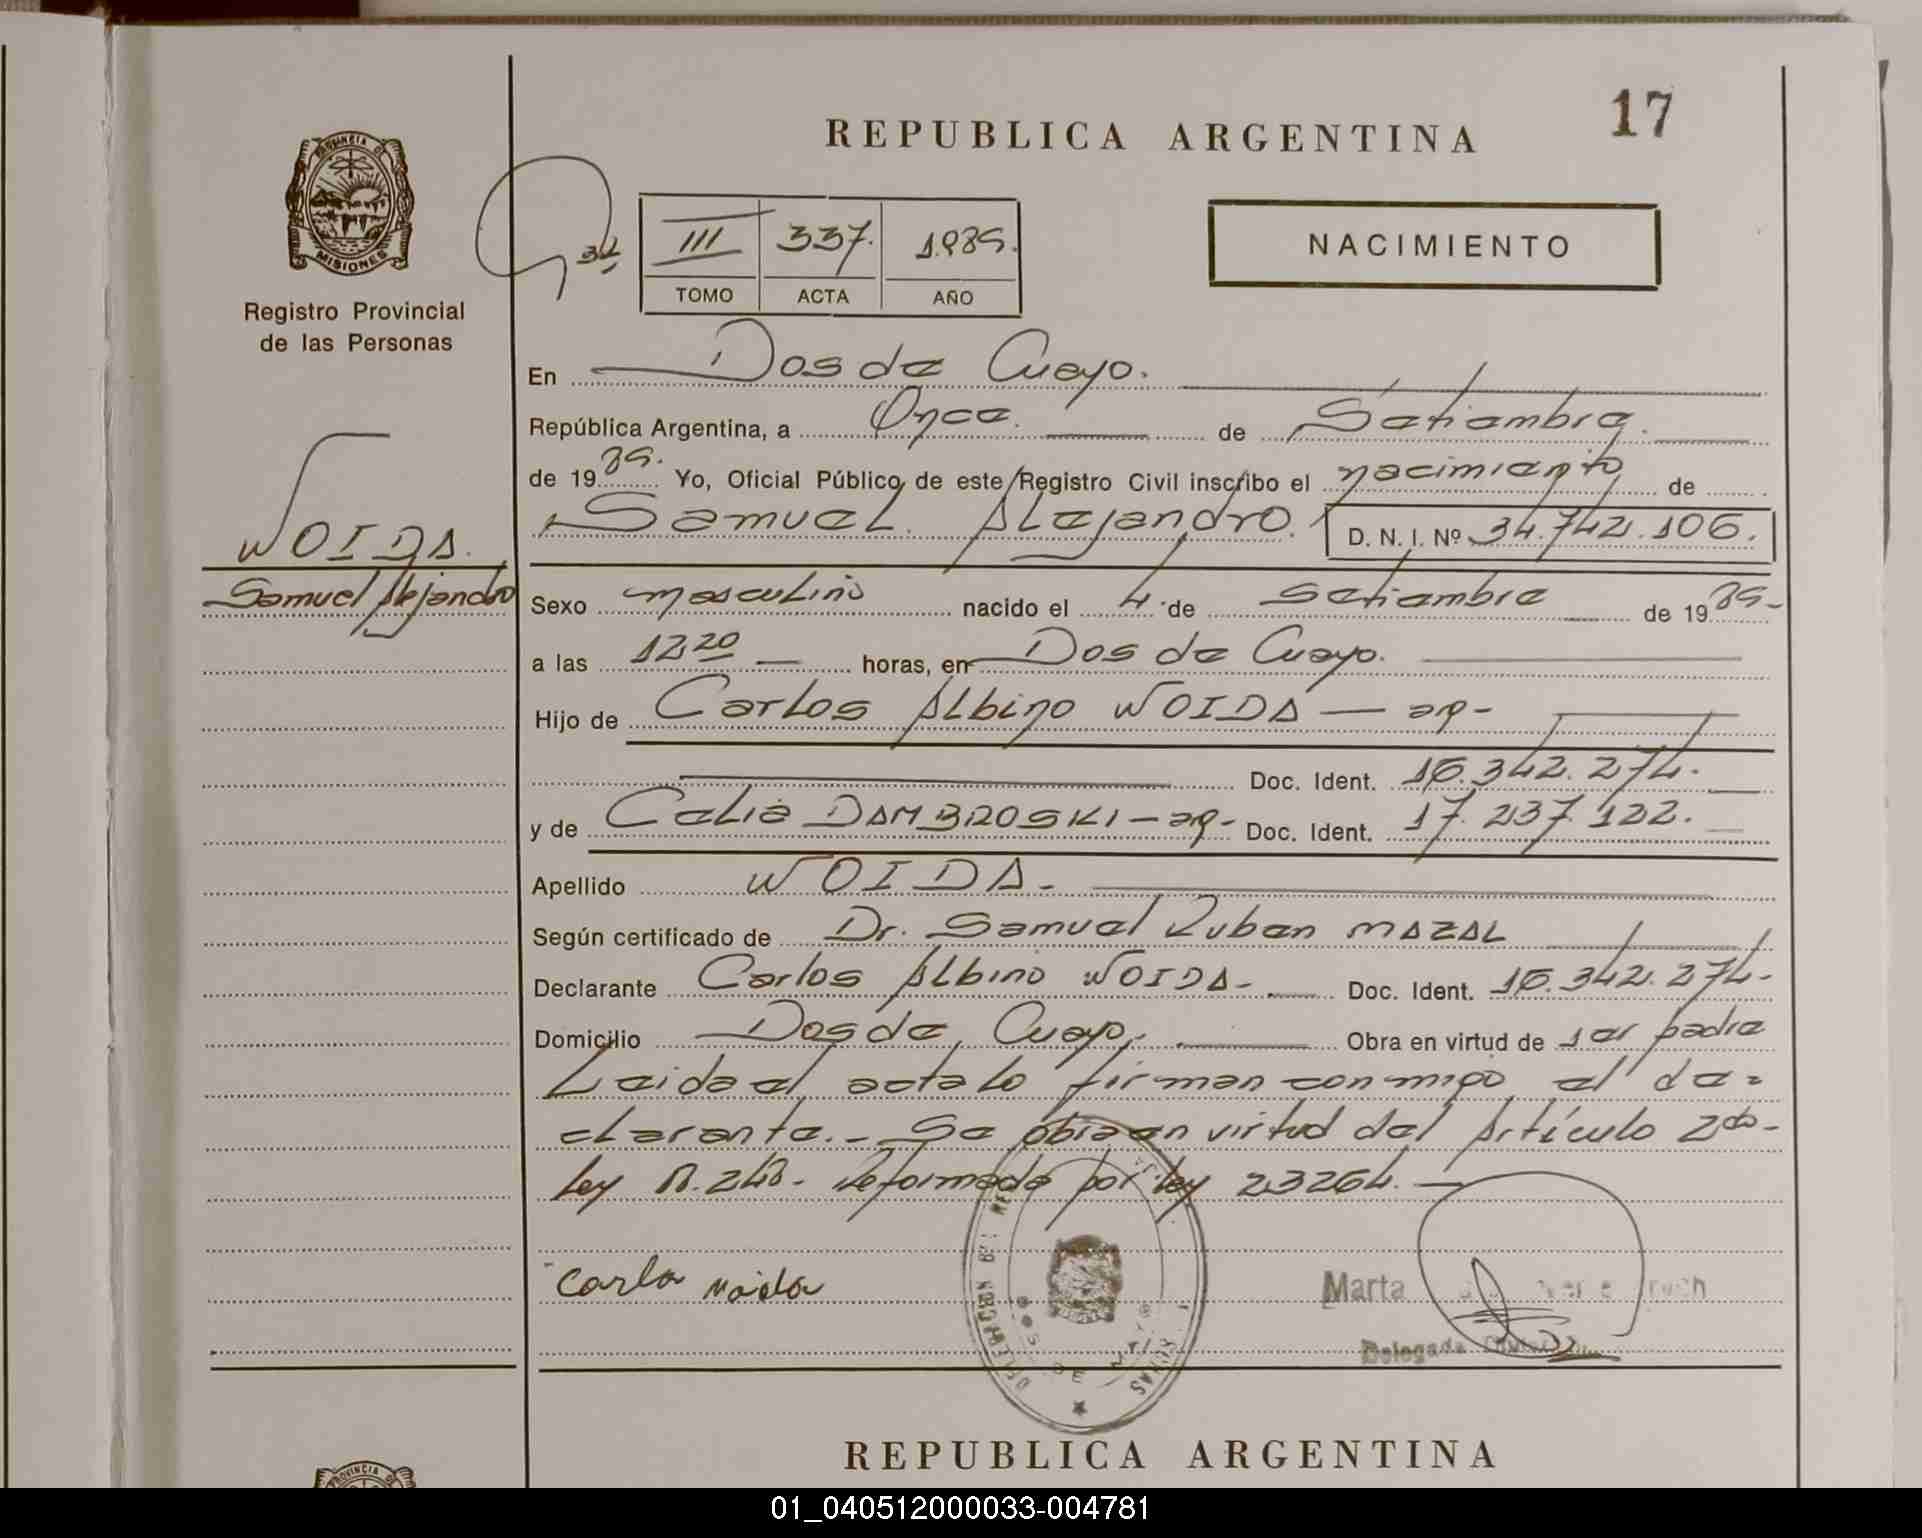 17
REPUBLICA ARGENTINA
PROVINCIA DE
MISIONES
Registro Provincial
de las Personas
NACIMIENTO
III 337. 1.989.
TOMO ACTA AÑO
En Dos de Mayo.
República Argentina, a Once. de Setiembre.
de 19 89. Yo, Oficial Público de este Registro Civil inscribo el nacimiento de
WOIDA.
Samuel Alejandro
Samuel. Alejandro. D. N. I. Nº 34.742.106.
Sexo masculino nacido el 4 de Setiembre de 19 89-
a las 12 20 horas, en Dos de Mayo.
Hijo de Carlos Albino WOIDA - ar-
Doc. Ident. 16.342.274.
y de Celia DAMBROSKI - ar- Doc. Ident. 17.237.122.
Apellido WOIDA-
Según certificado de Dr. Samuel Ruben MAZAL
Declarante Carlos Albino WOIDA- Doc. Ident. 16.342.274-
Domicilio Dos de Mayo. Obra en virtud de ser padre
Leida el acta lo firman conmigo el de=
clarante.- Se obra en virtud del Artículo 2do-
Ley 18.248- Reformado por ley 23264.-
Carlo Woida
Marta
Delegada
DOS DE MAYO
MISIONES
REPUBLICA ARGENTINA
PROVINCIA DE
01_040512000033-004781